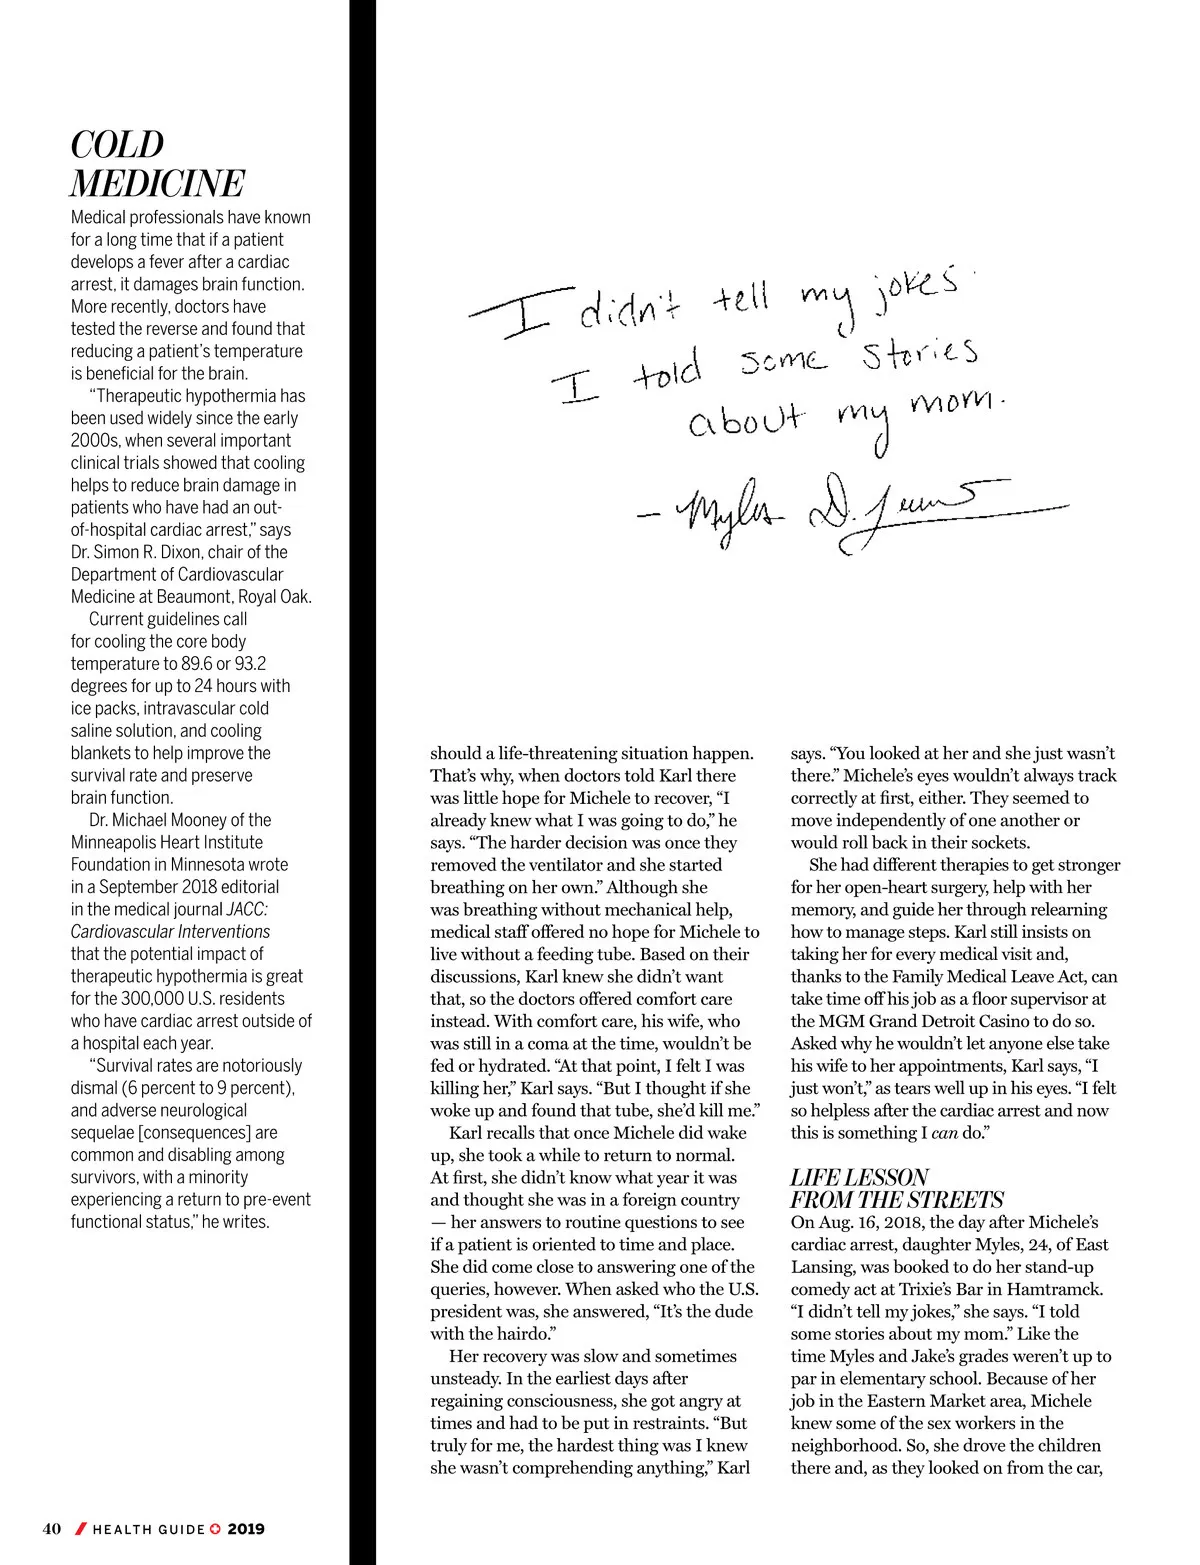 COLD
MEDICINE
Medical professionals have known
for a long time that if a patient
develops a fever after a cardiac
arrest, it damages brain function.
More recently, doctors have
tested the reverse and found that
reducing a patient's temperature
is beneficial for the brain.
"Therapeutic hypothermia has
been used widely since the early
2000s, when several important
clinical trials showed that cooling
helps to reduce brain damage in
patients who have had an out-
of-hospital cardiac arrest," says
Dr. Simon R. Dixon, chair of the
Department of Cardiovascular
Medicine at Beaumont, Royal Oak.
Current guidelines call
for cooling the core body
temperature to 89.6 or 93.2
degrees for up to 24 hours with
ice packs, intravascular cold
saline solution, and cooling
blankets to help improve the
survival rate and preserve
brain function.
Dr. Michael Mooney of the
Minneapolis Heart Institute
Foundation in Minnesota wrote
in a September 2018 editorial
in the medical journal JACC:
Cardiovascular Interventions
that the potential impact of
therapeutic hypothermia is great
for the 300,000 U.S. residents
who have cardiac arrest outside of
a hospital each year.
"Survival rates are notoriously
dismal (6 percent to 9 percent),
and adverse neurological
sequelae [consequences] are
common and disabling among
survivors, with a minority
experiencing a return to pre-event
functional status," he writes.
I didn't tell my jokes.
I told some stories
about my mom.
– Myles D.
should a life-threatening situation happen.
That's why, when doctors told Karl there
was little hope for Michele to recover, "I
already knew what I was going to do," he
says. "The harder decision was once they
removed the ventilator and she started
breathing on her own." Although she
was breathing without mechanical help,
medical staff offered no hope for Michele to
live without a feeding tube. Based on their
discussions, Karl knew she didn't want
that, so the doctors offered comfort care
instead. With comfort care, his wife, who
was still in a coma at the time, wouldn't be
fed or hydrated. "At that point, I felt I was
killing her," Karl says. "But I thought if she
woke up and found that tube, she'd kill me."
Karl recalls that once Michele did wake
up, she took a while to return to normal.
At first, she didn't know what year it was
and thought she was in a foreign country
— her answers to routine questions to see
if a patient is oriented to time and place.
She did come close to answering one of the
queries, however. When asked who the U.S.
president was, she answered, "It's the dude
with the hairdo."
Her recovery was slow and sometimes
unsteady. In the earliest days after
regaining consciousness, she got angry at
times and had to be put in restraints. "But
truly for me, the hardest thing was I knew
she wasn't comprehending anything," Karl
says. "You looked at her and she just wasn't
there." Michele's eyes wouldn't always track
correctly at first, either. They seemed to
move independently of one another or
would roll back in their sockets.
She had different therapies to get stronger
for her open-heart surgery, help with her
memory, and guide her through relearning
how to manage steps. Karl still insists on
taking her for every medical visit and,
thanks to the Family Medical Leave Act, can
take time off his job as a floor supervisor at
the MGM Grand Detroit Casino to do so.
Asked why he wouldn't let anyone else take
his wife to her appointments, Karl says, "I
just won't," as tears well up in his eyes. "I felt
so helpless after the cardiac arrest and now
this is something I can do."
LIFE LESSON
FROM THE STREETS
On Aug. 16, 2018, the day after Michele's
cardiac arrest, daughter Myles, 24, of East
Lansing, was booked to do her stand-up
comedy act at Trixie's Bar in Hamtramck.
"I didn't tell my jokes," she says. "I told
some stories about my mom." Like the
time Myles and Jake's grades weren't up to
par in elementary school. Because of her
job in the Eastern Market area, Michele
knew some of the sex workers in the
neighborhood. So, she drove the children
there and, as they looked on from the car,
40 / HEALTH GUIDE 2019